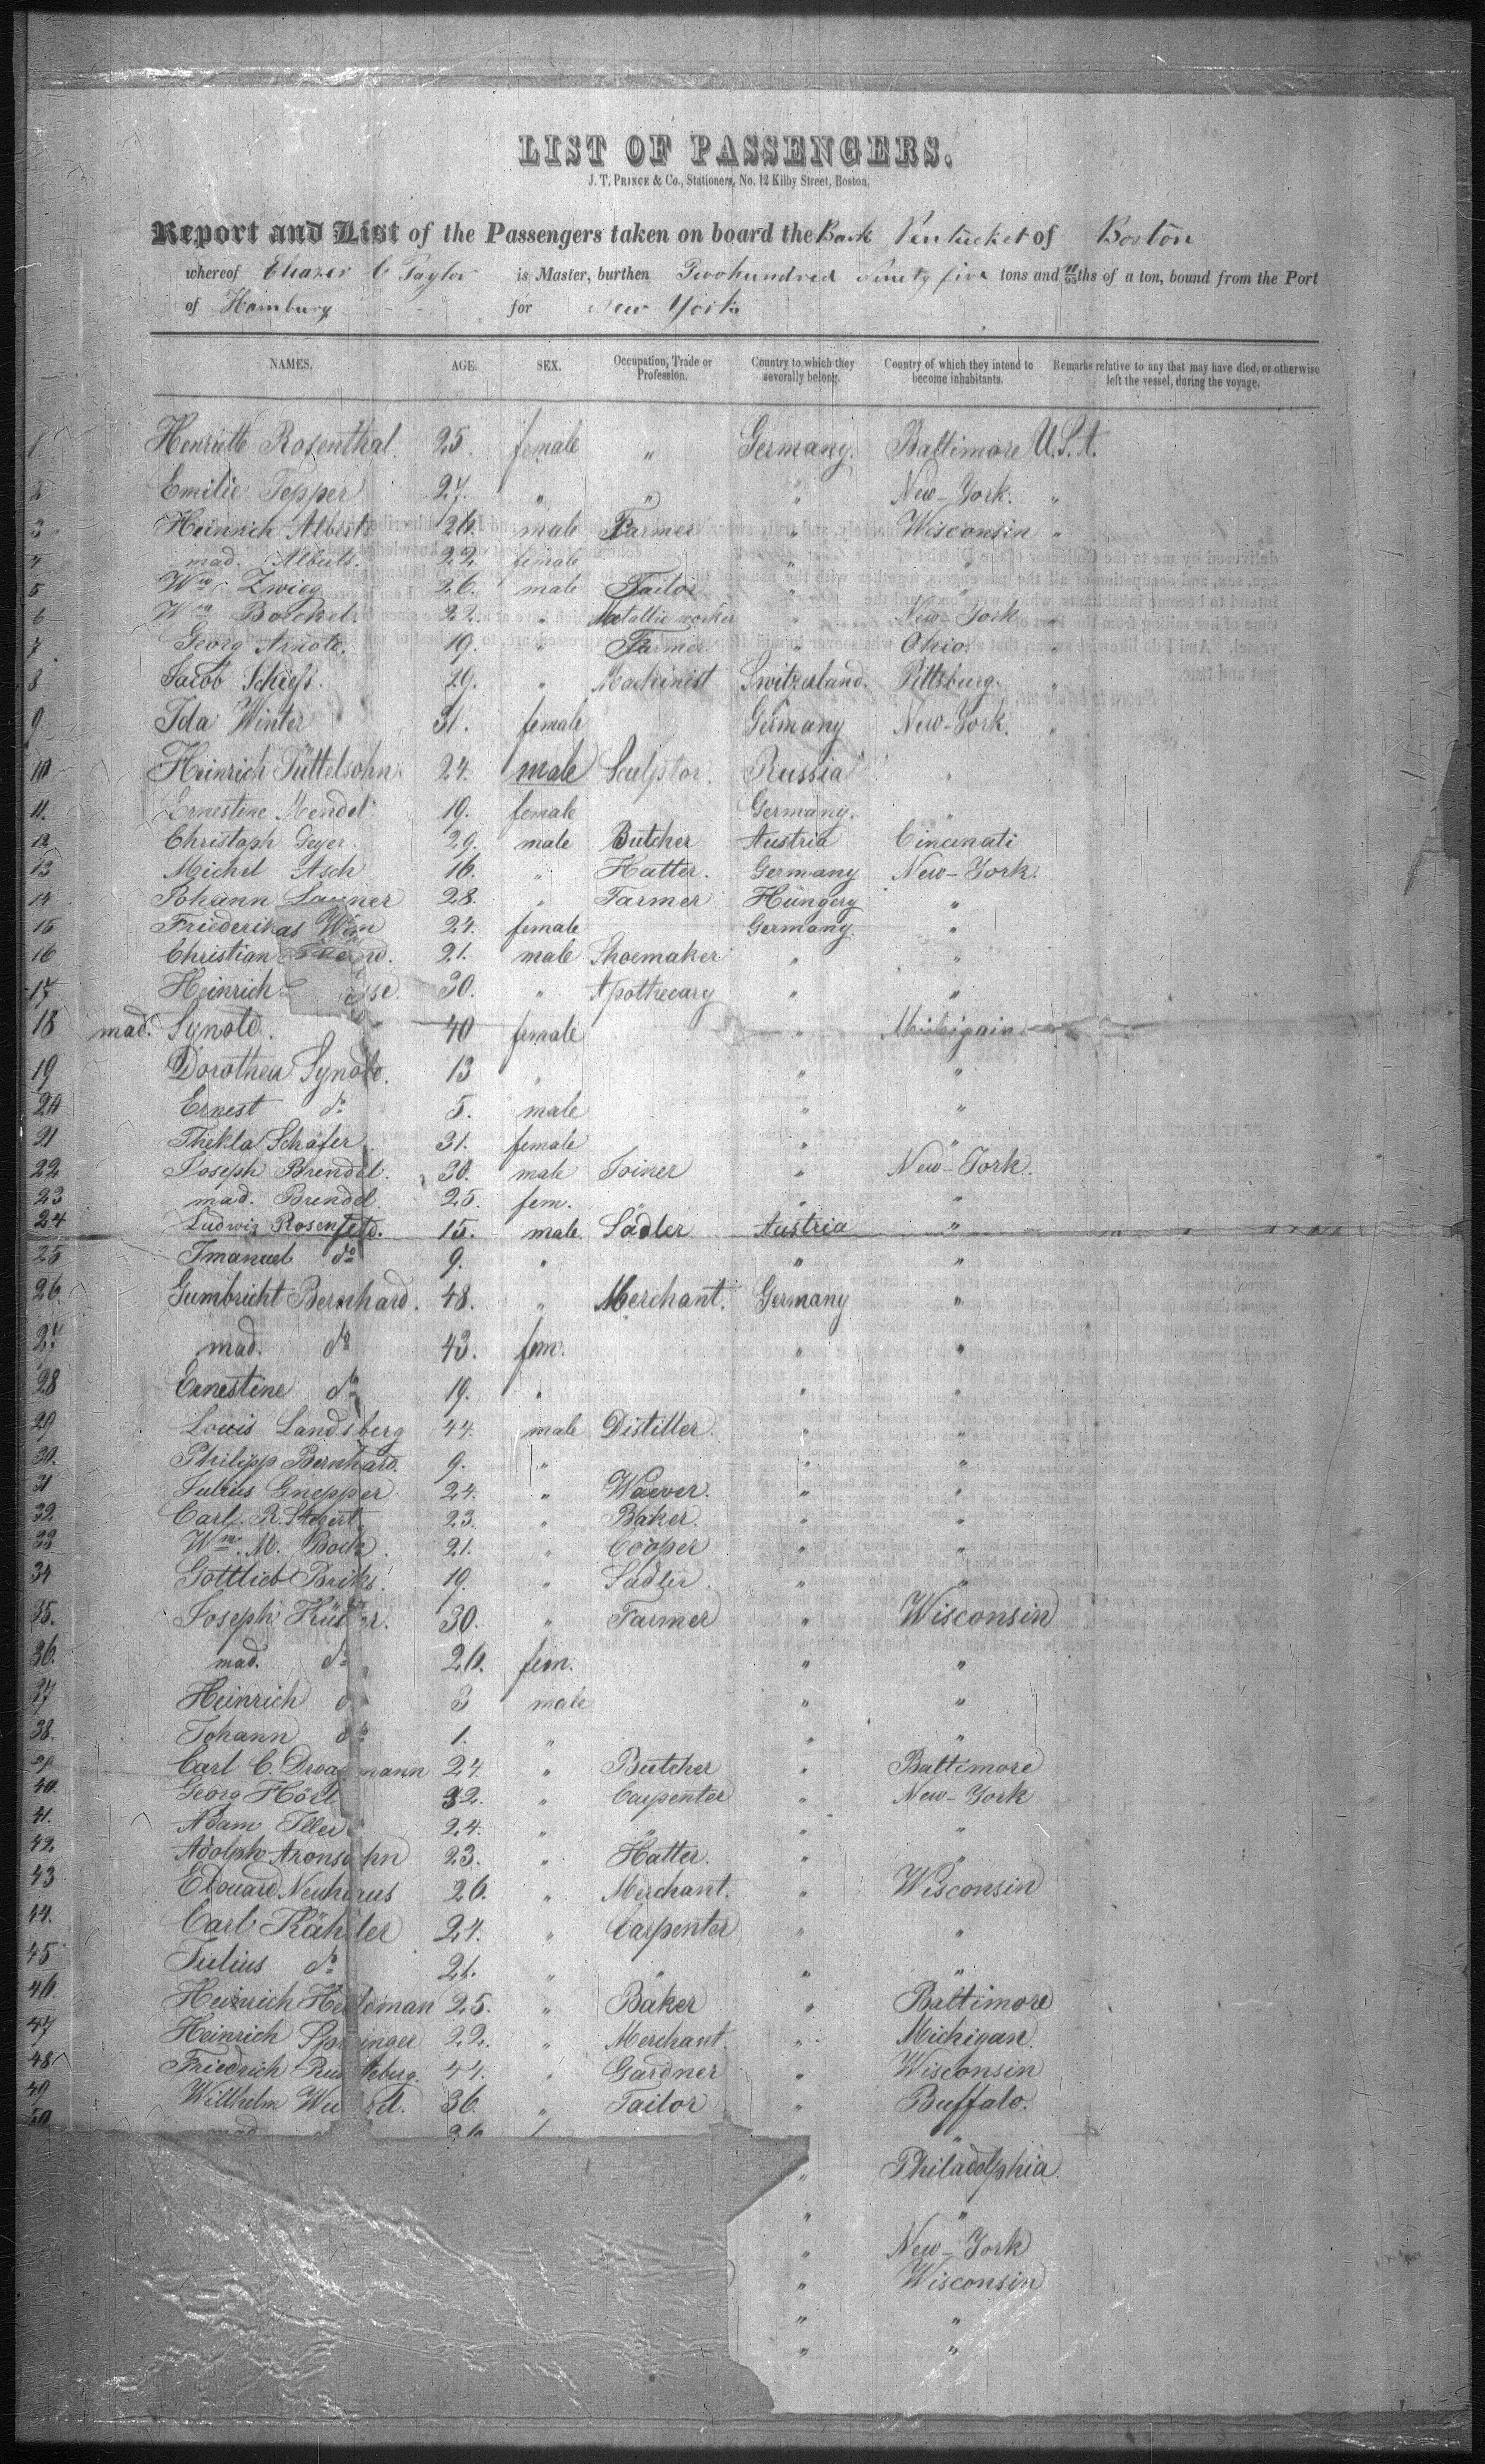 LIST OF PASSENGERS.
J. T. PRINCE & Co., Stationers, No. 12 Kilby Street, Boston.
Report and List of the Passengers taken on board the Bark Pentucket of Boston
whereof Eleazer C Taylor is Master, burthen Two hundred Ninety five tons and 95ths of a ton, bound from the Port
of Hamburg for New York
NAMES. AGE. SEX. Occupation, Trade or Profession. Country to which they severally belong. Country of which they intend to become inhabitants. Remarks relative to any that may have died, or otherwise left the vessel, during the voyage.
1 Henriette Rosenthal. 25. female " Germany. Baltimore U.S.A.
2 Emilie Tepper 27. " " " New-York. "
3 Heinrich Alberts 26. male Farmer " Wisconsin "
4 mad. Alberts. 22. female " "
5 Wm Zwieg 26. male Tailor " "
6 Wm Boechel. 22. " Metallic worker " New-York "
7. Georg Arnold. 19. " Farmer " Ohio.
8 Jacob Schiess. 29. " Machinist Switzerland. Pittsburg. "
9 Ida Winter 31. female Germany New-York. "
10 Heinrich Tüttelsohn. 24. male Sculptor. Russia "
11. Ernestine Mendel 19. female Germany. "
12 Christoph Geyer. 29. male Butcher Austria Cincinati
13 Michel Asch 16. " Hatter. Germany New-York.
14 Johann 28. " Farmer Hüngery "
15 Friederikas 24. female Germany. "
16 Christian 21. male Shoemaker " "
17 Heinrich 30. " Apothecary " "
18 mad. Synold. 40 female " Michigain
19 Dorothea Synold. 13 " " "
20 Ernest do 5. male " "
21 Thekla Schäfer 31. female " "
22 Joseph Brendel. 30. male Joiner " New-York.
23 mad. Brendel 25. fem. " "
24 Ludwig Rosenfeld. 15. male Sadler Austria "
25 Imanuel do 9. " " "
26 Gumbricht Bernhard. 48. " Merchant. Germany "
27 mad. do 43. fem. " "
28 Ernestine do 19. " " "
29 Louis Landsberg 44. male Distiller. " "
30. Philipp Bernhard. 9. " " "
31 Julius Gnepper 24. " Waever. " "
32 Carl. R. Stegert 23. " Baker. " "
33 Wm. M. Bock. 21. " Cooper " "
34 Gottlieb Briks. 19. " Sadler. " "
35. Joseph 30. " Farmer " Wisconsin
36. mad. do 26. fem. " "
37 Heinrich do 3 male " "
38. Johann do 1. " " "
39 Carl C. 24 " Butcher " Baltimore
40. Georg 32. " Carpenter " New-York
41. Adam Iller 24. " " " "
42. Adolph Aronsohn 23. " Hatter. " "
43 Edouard Neuhaus 26. " Merchant. " Wisconsin
44. Carl Kähler 24. " Carpenter " "
45 Julius do 21. " " " "
46 Heinrich 25. " Baker " Baltimore
47 Heinrich Springer 22. " Merchant. " Michigan.
48 Friedrich 44. " Gardner " Wisconsin
49 Wilhelm 36. " Tailor " Buffalo.
50 mad. "
" Philadelphia.
" "
" New-York
" Wisconsin
" "
" "